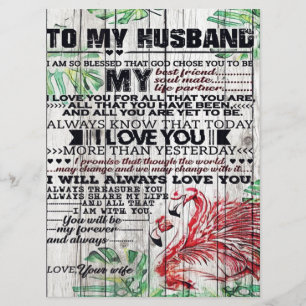 TO MY HUSBAND
I AM SO BLESSED THAT GOD CHOSE YOU TO BE
MY best friend...
soul mate...
life partner...
I LOVE YOU FOR ALL THAT YOU ARE,
ALL THAT YOU HAVE BEEN,
AND ALL YOU ARE YET TO BE.
ALWAYS KNOW THAT TODAY
I LOVE YOU
MORE THAN YESTERDAY
I promise that though the world
may change and we may change with it...
I WILL ALWAYS LOVE YOU
ALWAYS TREASURE YOU
ALWAYS SHARE MY LIFE
AND ALL THAT
I AM WITH YOU.
You will be
my forever
and always
LOVE, Your wife